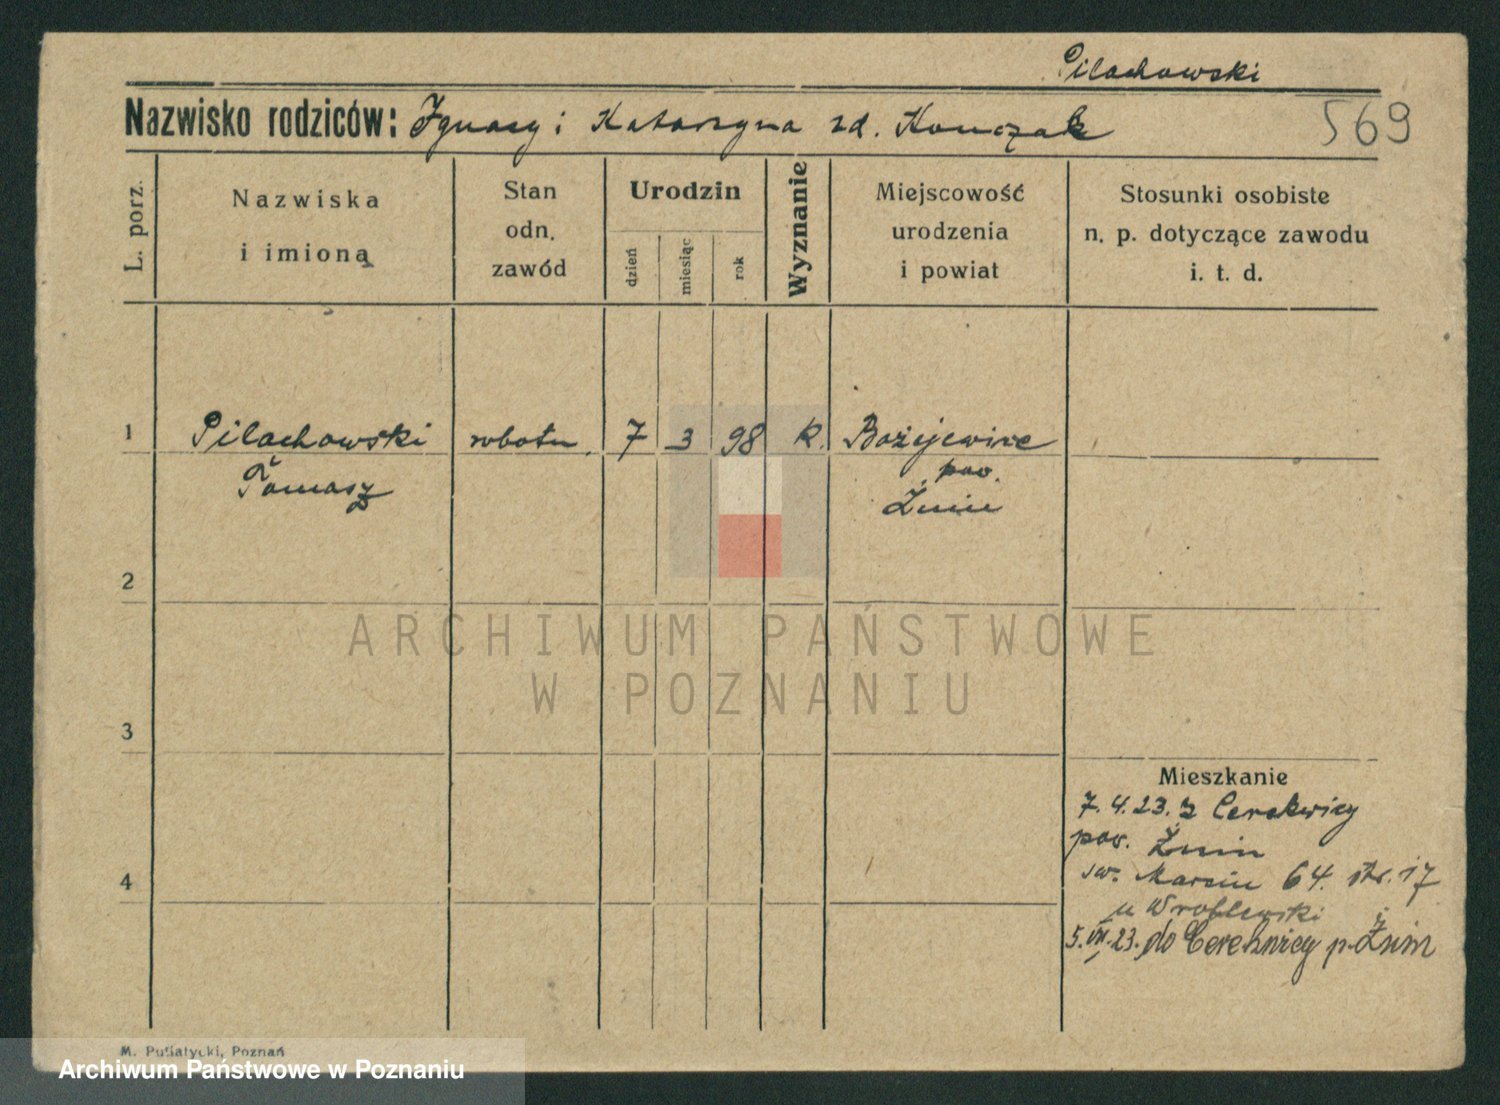 Pilachowski
Nazwisko rodziców: Ignacy i Katarzyna zd. Konczak
569
L. porz.
Nazwiska
i imiona
Stan
odn.
zawód
Urodzin
dzień
miesiąc
rok
Wyznanie
Miejscowość
urodzenia
i powiat
Stosunki osobiste
n. p. dotyczące zawodu
i. t. d.
1 Pilachowski robotn. 7 3 98 k. Bożejewice
pow.
Tomasz Żnin
2
ARCHIWUM PAŃSTWOWE
W POZNANIU
3
Mieszkanie
7.4.23. z Cerekwicy
pow. Żnin
4
św. Marcin 64. str. 17
u Wroblewski
5.VII.23. do Cerekwicy p. Żnin
M. Putiatycki, Poznań
Archiwum Państwowe w Poznaniu